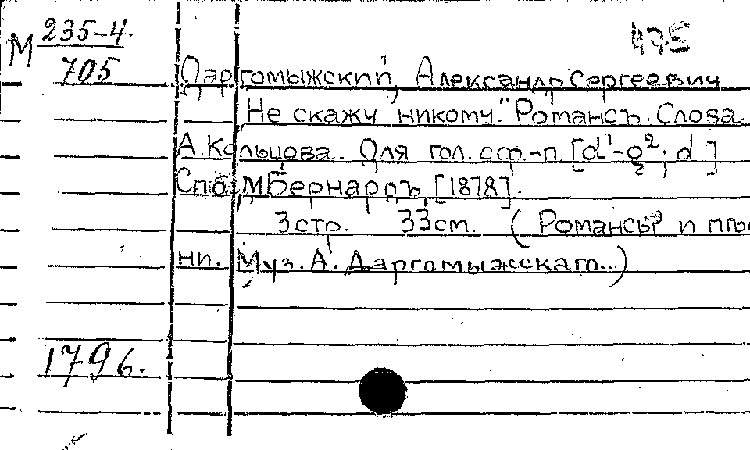 М 235-4.
705
475
Даргомыжский, Александр Сергеевич
"Не скажу никому." Романсъ. Слова
А. Кольцова. Для гол. с ф.-п. [d¹-g²; d]
Спб, М Бернардъ [1878].
3 стр. 33 см. (Романсы и пѣс
ни. Муз. А. Даргомыжскаго..)
1796.